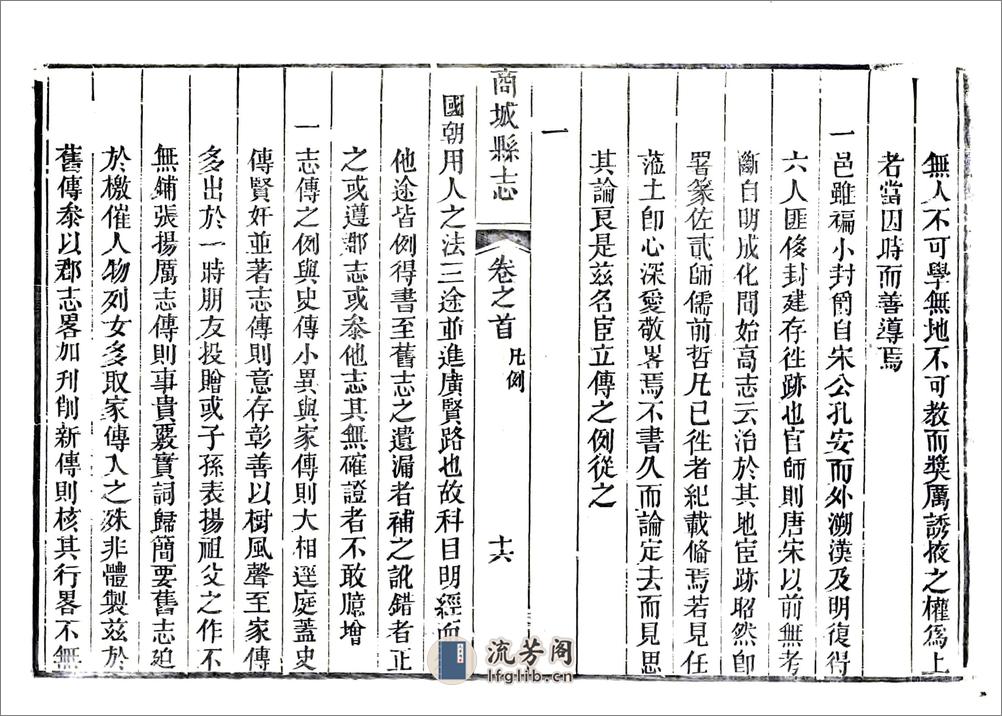 無人不可學無地不可教而獎厲誘掖之權爲上
者當因時而善導焉
一邑雖褊小封爵自宋公孔安而外溯漢及明復得
六人匪侈封建存徃跡也官師則唐宋以前無考
斷自明成化間始高志云治於其地宦跡昭然卽
署篆佐貳師儒前哲凡已徃者紀載偹焉若見任
蒞土卽心深愛敬畧焉不書久而論定去而見思
其論良是兹名臣立傳之例從之
一
商城縣志
卷之首
凡例
十六
國朝用人之法三途並進廣賢路也故科目明經而
他途皆例得書至舊志之遺漏者補之訛錯者正
之或遵郡志或叅他志其無確證者不敢臆增
一志傳之例與史傳小異與家傳則大相逕庭葢史
傳賢奸並著志傳則意存彰善以樹風聲至家傳
多出於一時朋友投贈或子孫表揚祖父之作不
無鋪張揚厲志傳則事貴覈實詞歸簡要舊志廹
於檄催人物列女多取家傳入之殊非體製兹於
舊傳叅以郡志畧加刋削新傳則核其行畧不無
流芳阁
lfglib.cn